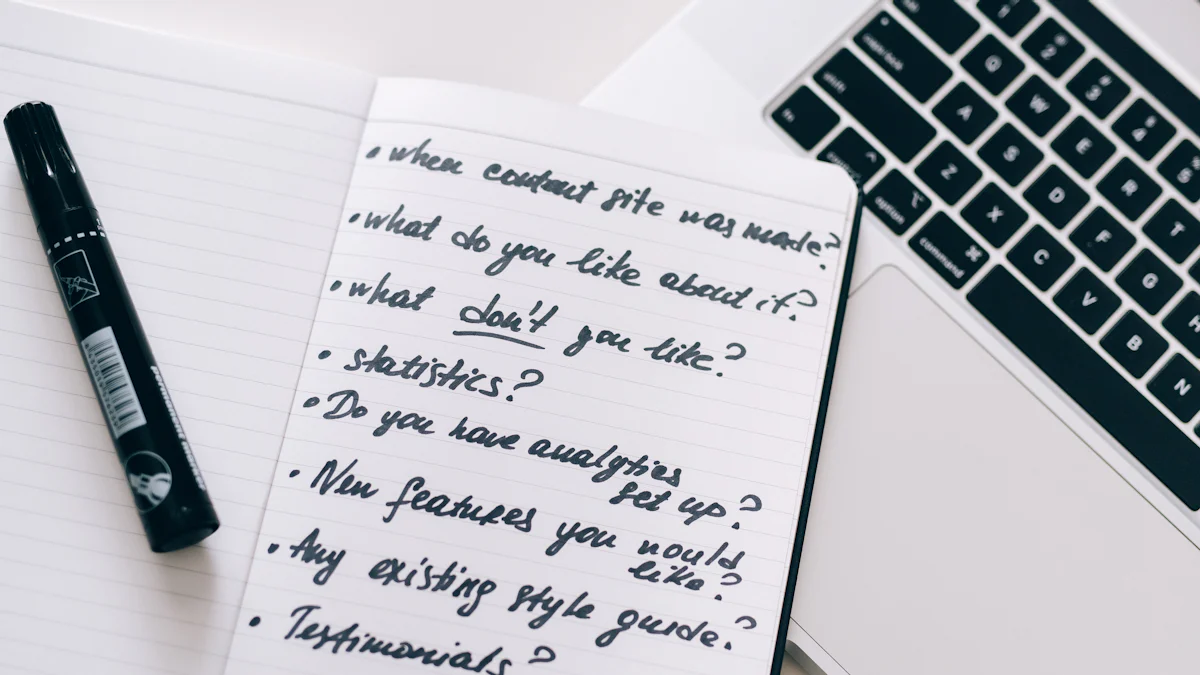 • when content site was made?
• what do you like about it?
• what don't you like?
• statistics?
• Do you have analytics
set up?
• New features you would
like?
• Any existing style guide?
• Testimonials?
1
2
3
4
Q
W
E
R
T
caps lock
A
S
D
F
G
shift
Z
X
C
V
B
N
fn
^
option
⌥
command
⌘